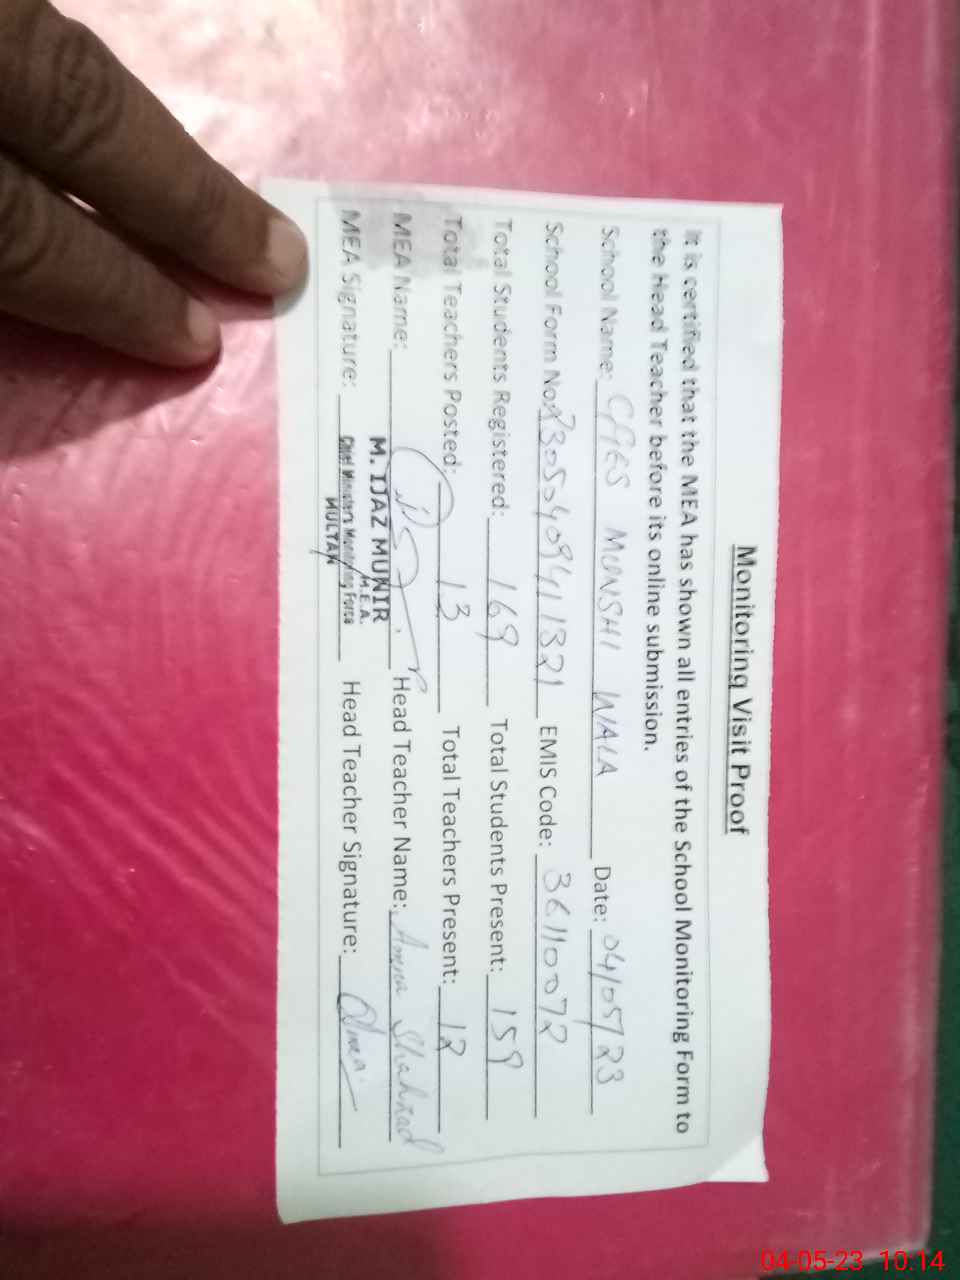 Monitoring Visit Proof
It is certified that the MEA has shown all entries of the School Monitoring Form to
the Head Teacher before its online submission.
School Name: MUNSHI WALA Date: 04/05/23
School Form No: EMIS Code: 36110072
Total Students Registered: 169 Total Students Present: 159
Total Teachers Posted: 13 Total Teachers Present: 12
MEA Name: Head Teacher Name: Amna Shahzad
M. IJAZ MUNIR
M.E.A.
MEA Signature: Chief Minister's Monitoring Force Head Teacher Signature:
MULTAN
04-05-23 10:14